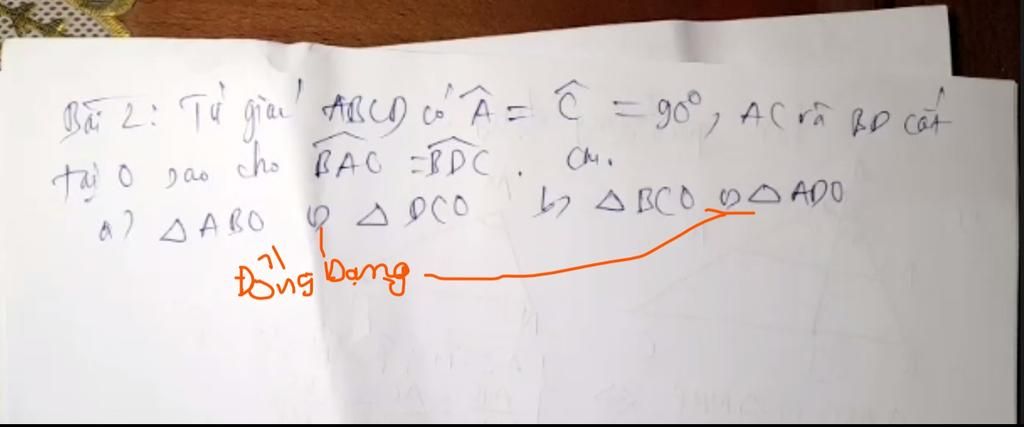 Bài 2: Tứ giác ABCD có Â = Ĉ = 90°, AC và BD cắt
tại O sao cho \widehat{BAC} = \widehat{BDC}. Cm.
a) △ABO ∽ △DCO b) △BCO ∽ △ADO
Đồng Dạng